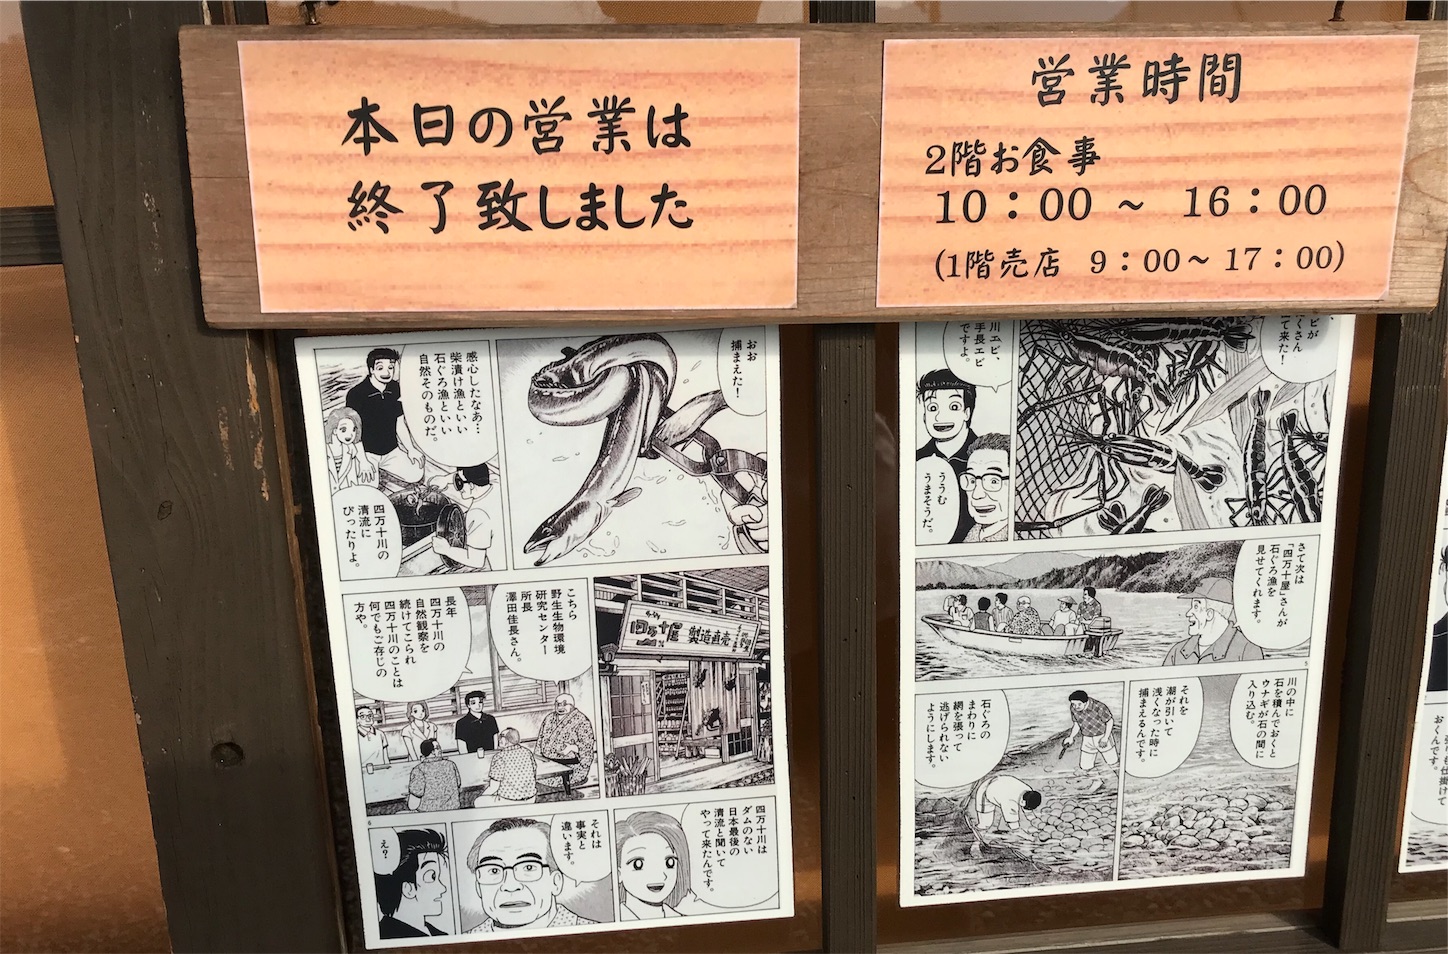 本日の営業は
終了致しました
営業時間
2階お食事
10：00 ～ 16：00
(1階売店 9：00～17：00)
おお
捕まえた！
感心したなあ…
柴漬け漁といい
石ぐろ漁といい
自然そのものだ。
四万十川の
清流に
ぴったりよ。
四万十屋 製造直売
こちら
野生生物環境
研究センター
所長
澤田佳長さん。
長年
四万十川の
自然観察を
続けてこられ
四万十川のことは
何でもご存じの
方や。
四万十川は
ダムのない
日本最後の
清流と聞いて
やって来たんです。
それは
事実と
違います。
え？
6
川エビ、
手長エビ
ですよ。
ううむ
うまそうだ。
さて次は
「四万十屋」さんが
石ぐろ漁を
見せてくれます。
5
川の中に
石を積んでおくと
ウナギが石の間に
入り込む。
それを
潮が引いて
浅くなった時に
捕まえるんです。
石ぐろの
まわりに
網を張って
逃げられない
ようにします。
も仕掛けて
おくんです。